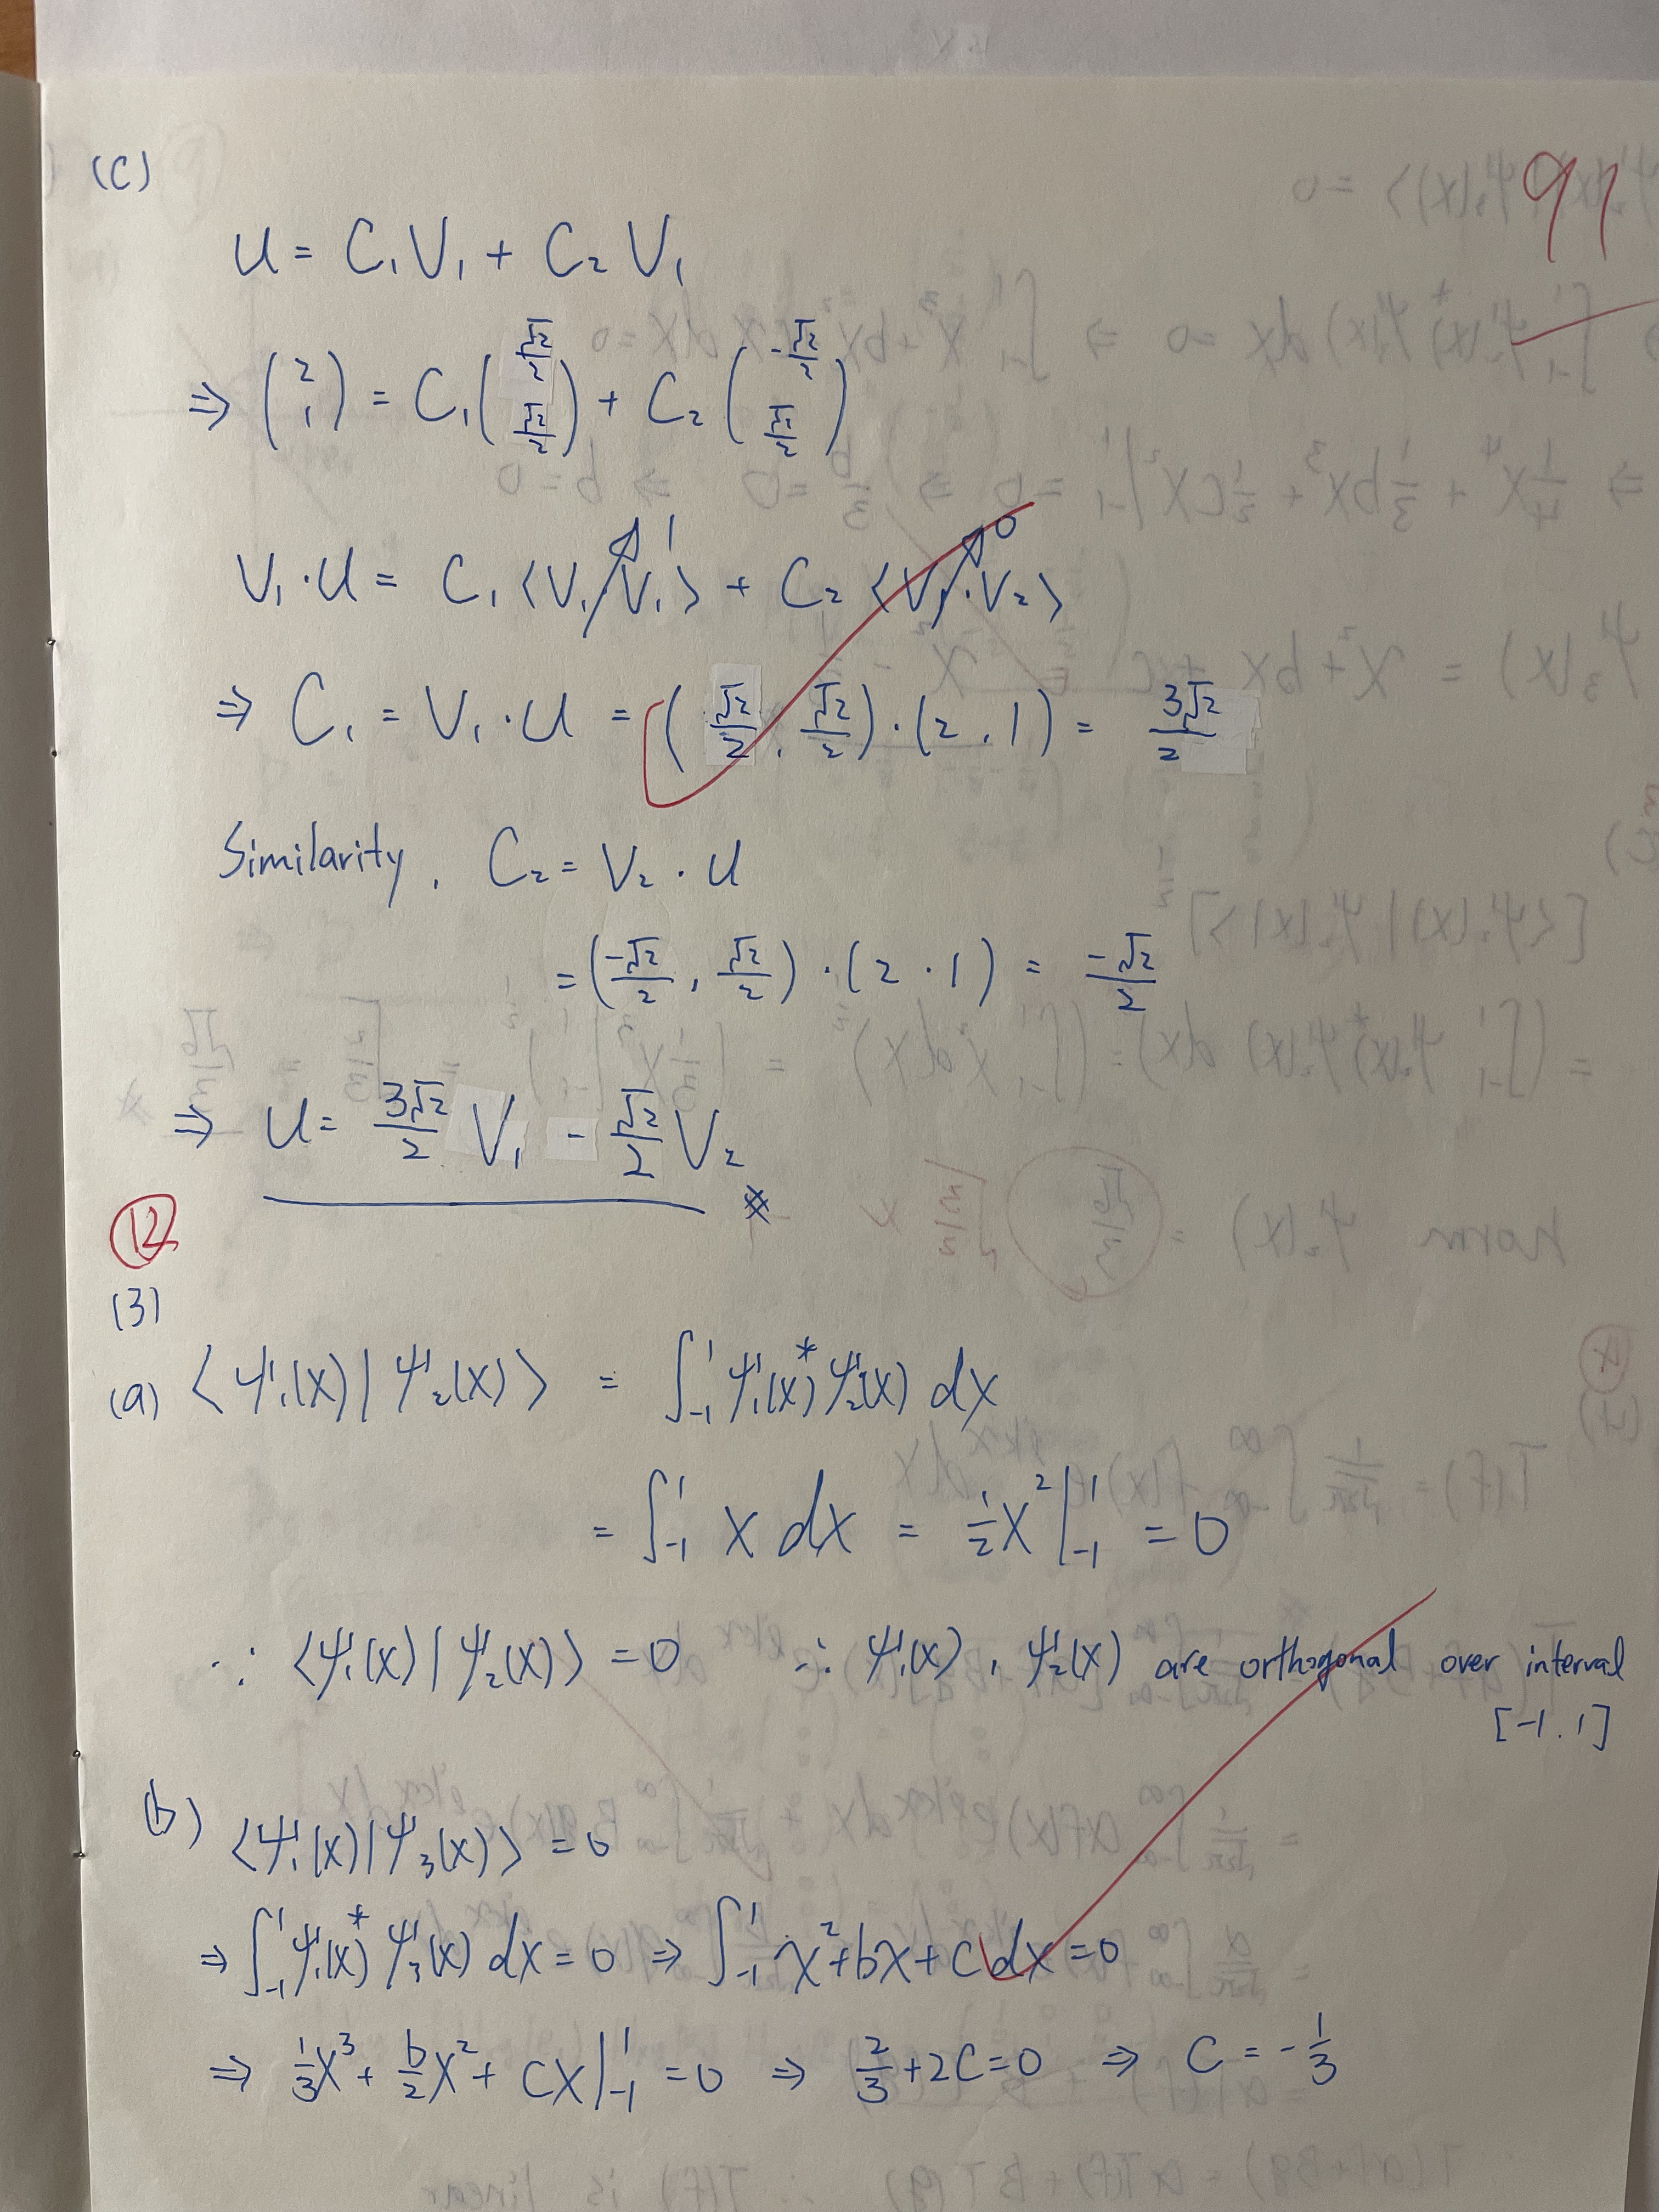 (c)
91
U = C₁V₁ + C₂V₁
⇒ (2 1) = C₁(√2/2 √2/2) + C₂(-√2/2 √2/2)
V₁·U = C₁⟨V₁·V₁⟩ 1 + C₂⟨V₁·V₂⟩ 0
⇒ C₁ = V₁·U = (√2/2, √2/2)·(2, 1) = 3√2/2
Similarity, C₂ = V₂·U
= (-√2/2, √2/2)·(2·1) = -√2/2
⇒ U = 3√2/2 V₁ - √2/2 V₂ #
12
(3)
(a) ⟨ψ₁(x)|ψ₂(x)⟩ = ∫₋₁¹ ψ₁(x)* ψ₂(x) dx
= ∫₋₁¹ x dx = ½x²|₋₁¹ = 0
∵ ⟨ψ₁(x)|ψ₂(x)⟩ = 0 ∴ ψ₁(x), ψ₂(x) are orthogonal over interval
[-1, 1]
(b) ⟨ψ₁(x)|ψ₃(x)⟩ = 0
⇒ ∫₋₁¹ ψ₁(x)* ψ₃(x) dx = 0 ⇒ ∫₋₁¹ x² + bx + c dx = 0
⇒ ⅓x³ + b/2 x² + cx|₋₁¹ = 0 ⇒ 2/3 + 2c = 0 ⇒ c = -1/3